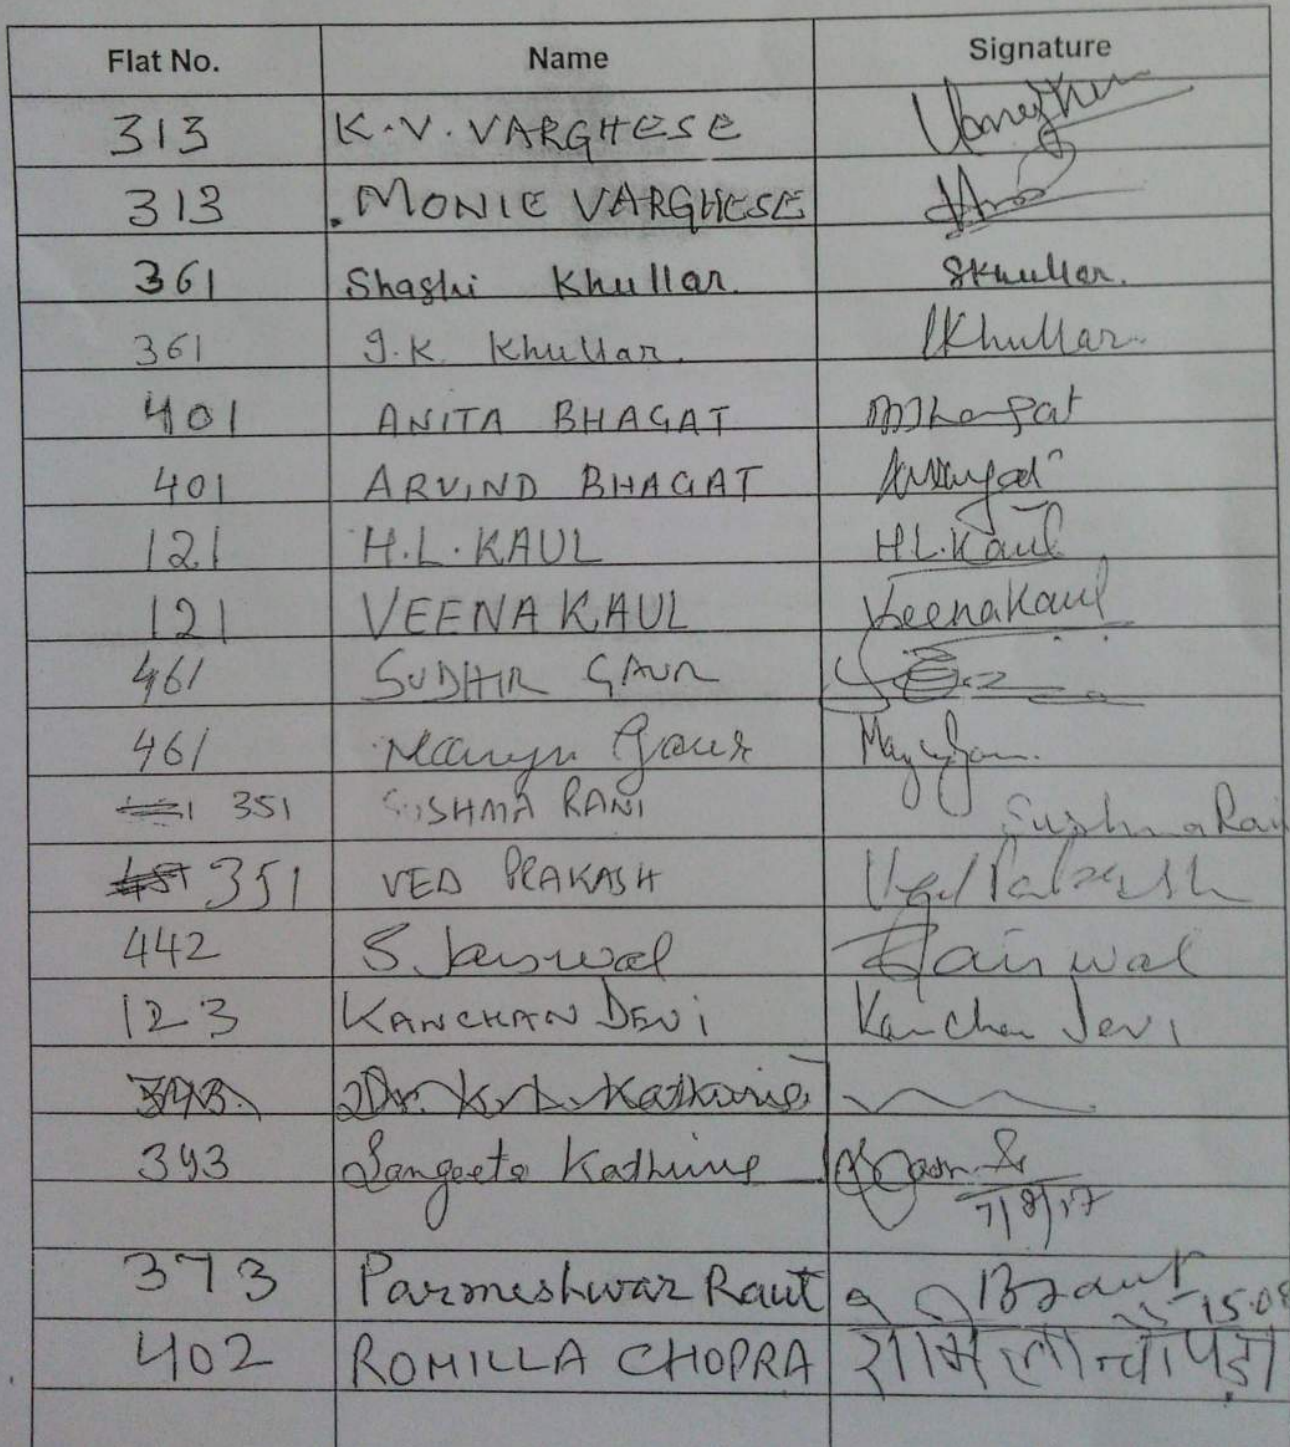 Flat No. Name Signature
313 K.V. VARGHESE
313 . MONIE VARGHESE
361 Shashi Khullar. SKhullar.
361 I.K. Khullar. IKhullar.
401 ANITA BHAGAT
401 ARVIND BHAGAT
121 H.L. KAUL H.L. Kaul
121 VEENA KAUL Veena Kaul
461 SUDHIR GAUR
461 Gaur
351 SUSHMA RANI Sushma Rani
351 VED PRAKASH Ved Prakash
442 S Jaiswal Jaiswal
123 KANCHAN DEVI Kanchan Devi
393. Dr. K.L. Kathuria
393 Sangeeta Kathuria
7/8/17
373 Parmeshwar Raut PRaut
15.08
402 ROMILLA CHOPRA रोमिला चोपड़ा